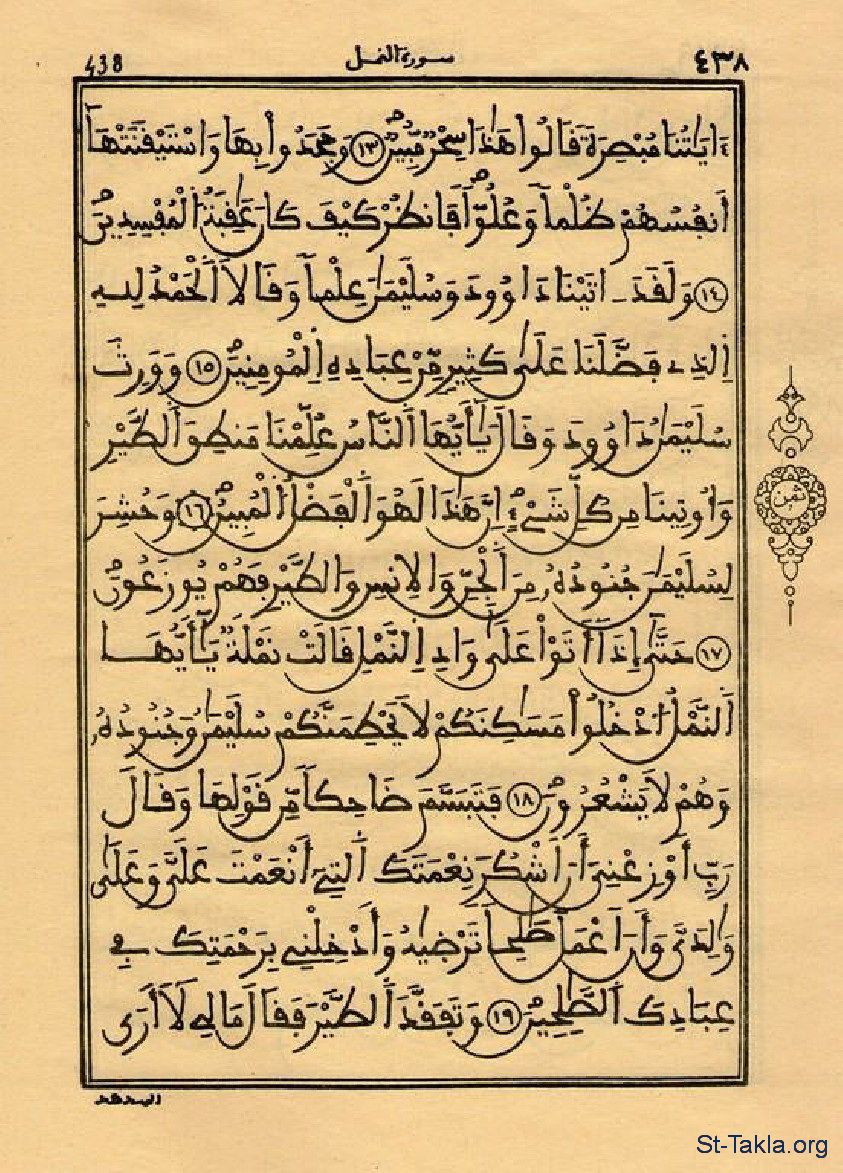 438 سورة النمل ٤٣٨
ءَايَٰتُنَا مُبْصِرَةٗ قَالُواْ هَٰذَا سِحْرٞ مُّبِينٞ ١٣ وَجَحَدُواْ بِهَا وَاسْتَيْقَنَتْهَآ
أَنفُسُهُمْ ظُلْماٗ وَعُلُوّاٗ فَانظُرْ كَيْفَ كَانَ عَٰقِبَةُ اُلْمُفْسِدِينَ
١٤ وَلَقَدَ اٰتَيْنَا دَاوُودَ وَسُلَيْمَٰنَ عِلْماٗ وَقَالَا اَلْحَمْدُ لِلهِ
اِلذِے فَضَّلَنَا عَلَىٰ كَثِيرٖ مِّنْ عِبَادِهِ اِلْمُومِنِينَ ١٥ وَوَرِثَ
سُلَيْمَٰنُ دَاوُودَ وَقَالَ يَٰٓأَيُّهَا اَلنَّاسُ عُلِّمْنَا مَنطِقَ اَلطَّيْرِ
وَأُوتِينَا مِن كُلِّ شَےْءٍ اِنَّ هَٰذَا لَهُوَ اَلْفَضْلُ اُلْمُبِينُ ١٦ وَحُشِرَ
لِسُلَيْمَٰنَ جُنُودُهُۥ مِنَ اَلْجِنِّ وَالِانسِ وَالطَّيْرِ فَهُمْ يُوزَعُونَ
١٧ حَتَّىٰٓ إِذَآ أَتَوْاْ عَلَىٰ وَادِ اِلنَّمْلِ قَالَتْ نَمْلَةٞ يَٰٓأَيُّهَا
اَلنَّمْلُ اُدْخُلُواْ مَسَٰكِنَكُمْ لَا يَحْطِمَنَّكُمْ سُلَيْمَٰنُ وَجُنُودُهُۥ
وَهُمْ لَا يَشْعُرُونَ ١٨ فَتَبَسَّمَ ضَاحِكاٗ مِّن قَوْلِهَا وَقَالَ
رَبِّ أَوْزِعْنِےٓ أَنَ اَشْكُرَ نِعْمَتَكَ اَلتِےٓ أَنْعَمْتَ عَلَيَّ وَعَلَىٰ
وَٰلِدَيَّ وَأَنَ اَعْمَلَ صَٰلِحاٗ تَرْضَىٰهُ وَأَدْخِلْنِے بِرَحْمَتِكَ فِے
عِبَادِكَ اَلصَّٰلِحِينَ ١٩ وَتَفَقَّدَ اَلطَّيْرَ فَقَالَ مَا لِے لَآ أَرَى
ثمن
St-Takla.org